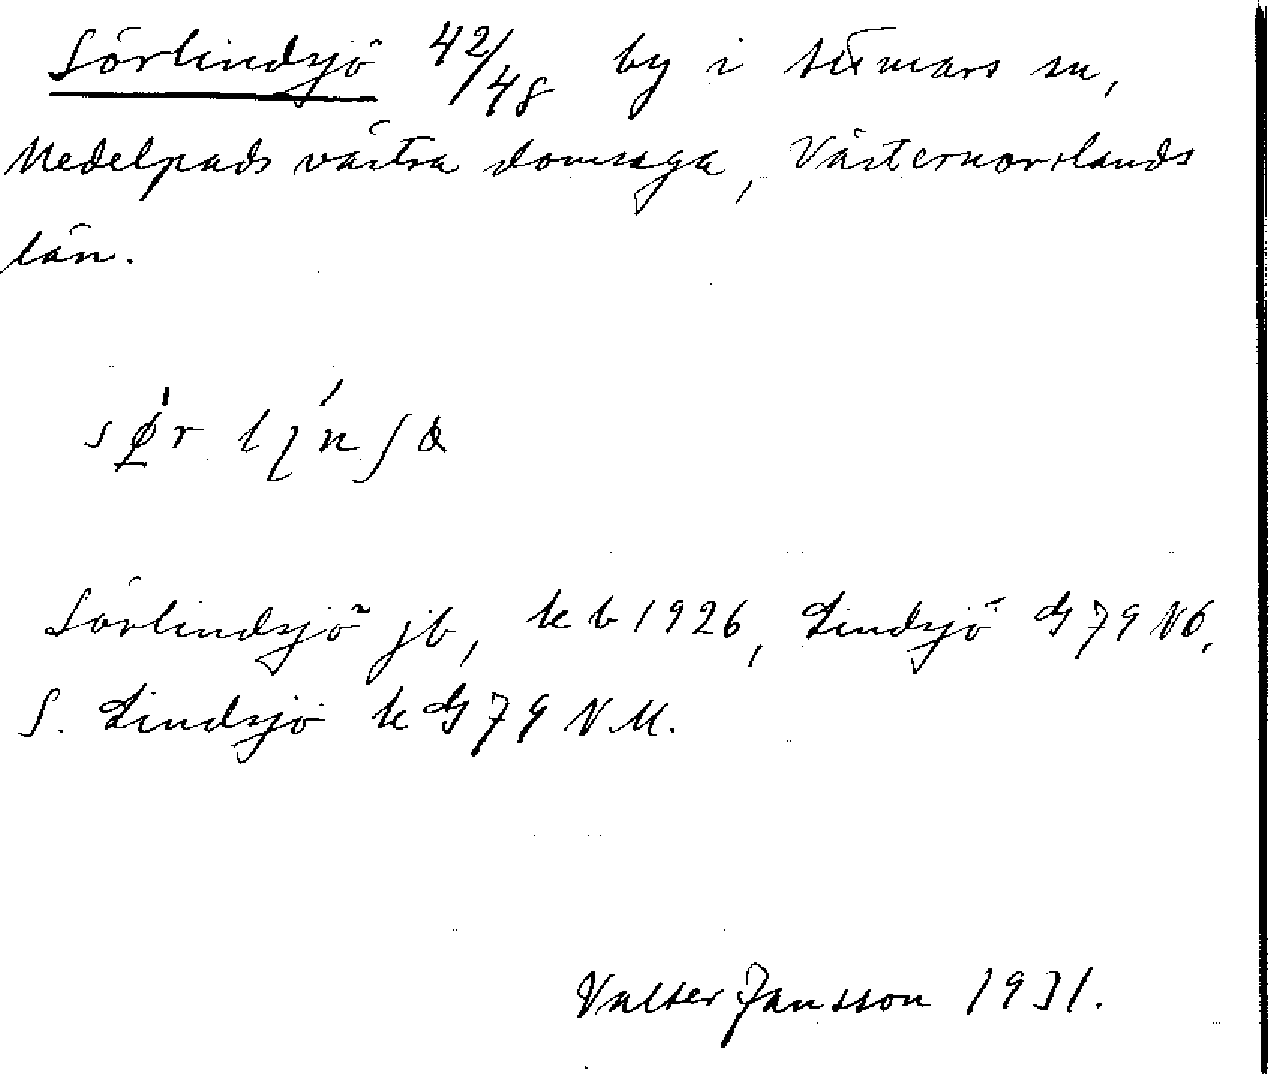 Sörlindsjö 42/48 by i Attmars sn,
Medelpads västra domsaga, Västernorrlands
län.
Sörlindsjö jb, kb 1926, Lindsjö G 79 NÖ,
S. Lindsjö k G 79 N M.
Valter Jansson 1931.